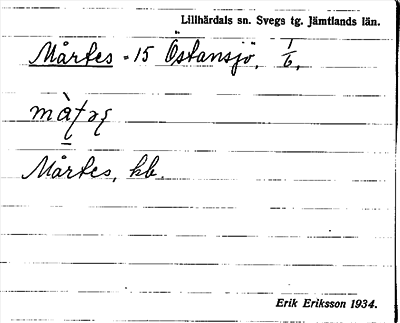 Lillhärdals sn. Svegs tg. Jämtlands län.
Mårtes - 15 Östansjö, 1/6,
Mårtes, kb.
Erik Eriksson 1934.